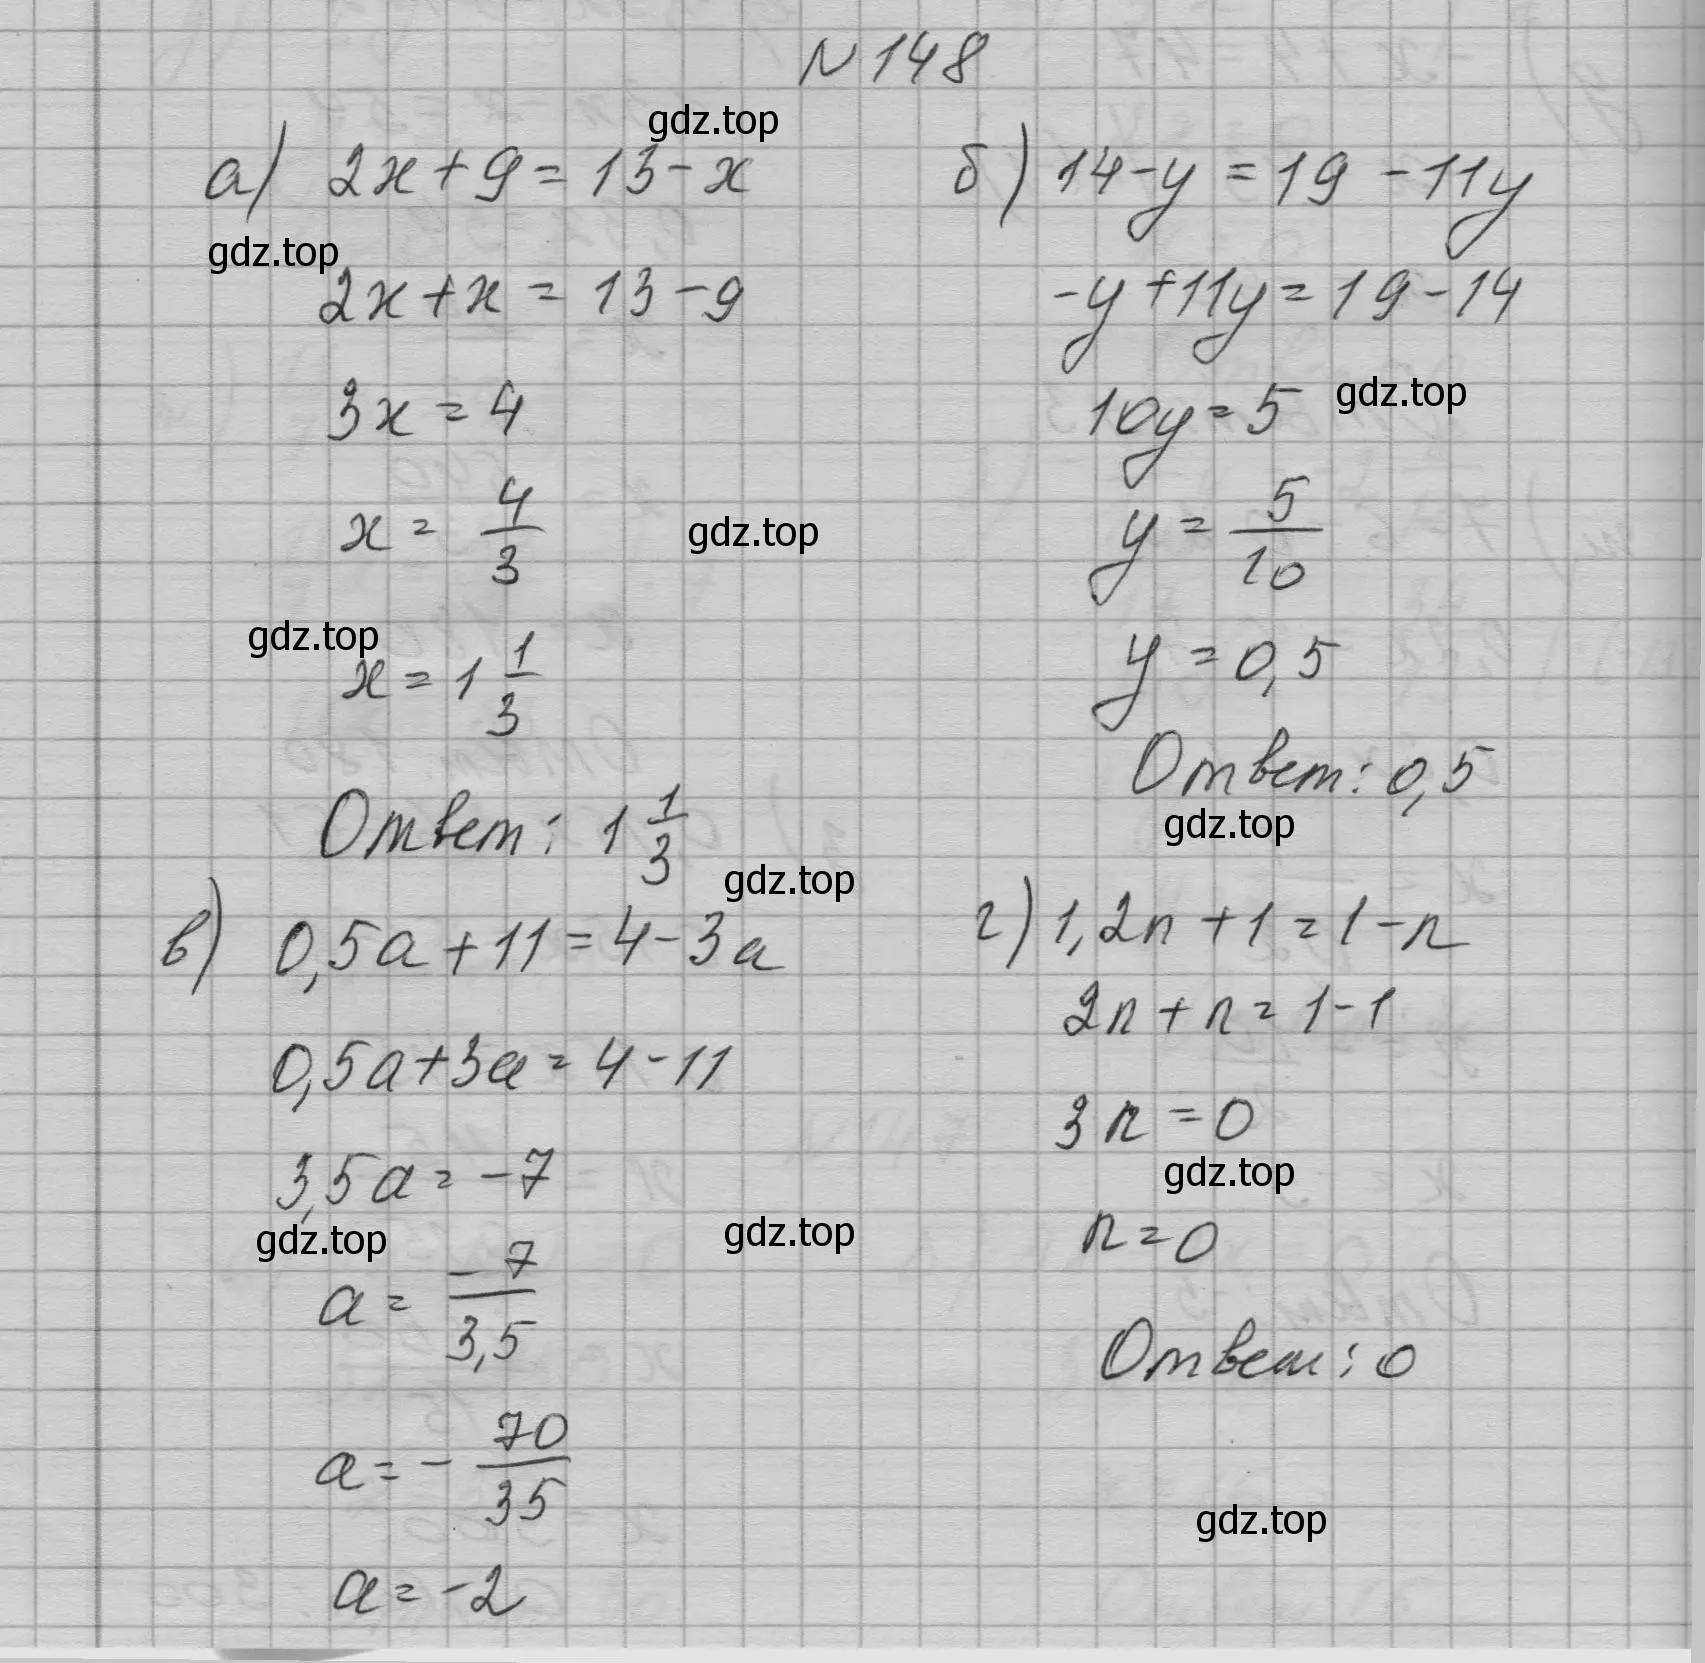 N 148
gdz.top
а) 2x + 9 = 13 - x
gdz.top
2x + x = 13 - 9
3x = 4
x = 4/3
gdz.top
gdz.top
x = 1 1/3
Ответ: 1 1/3
gdz.top
б) 14 - y = 19 - 11y
-y + 11y = 19 - 14
10y = 5
gdz.top
y = 5/10
y = 0,5
Ответ: 0,5
gdz.top
в) 0,5a + 11 = 4 - 3a
0,5a + 3a = 4 - 11
3,5a = -7
gdz.top
gdz.top
a = -7/3,5
a = - 70/35
a = -2
г) 1,2n + 1 = 1 - n
2n + n = 1 - 1
3n = 0
gdz.top
n = 0
Ответ: 0
gdz.top